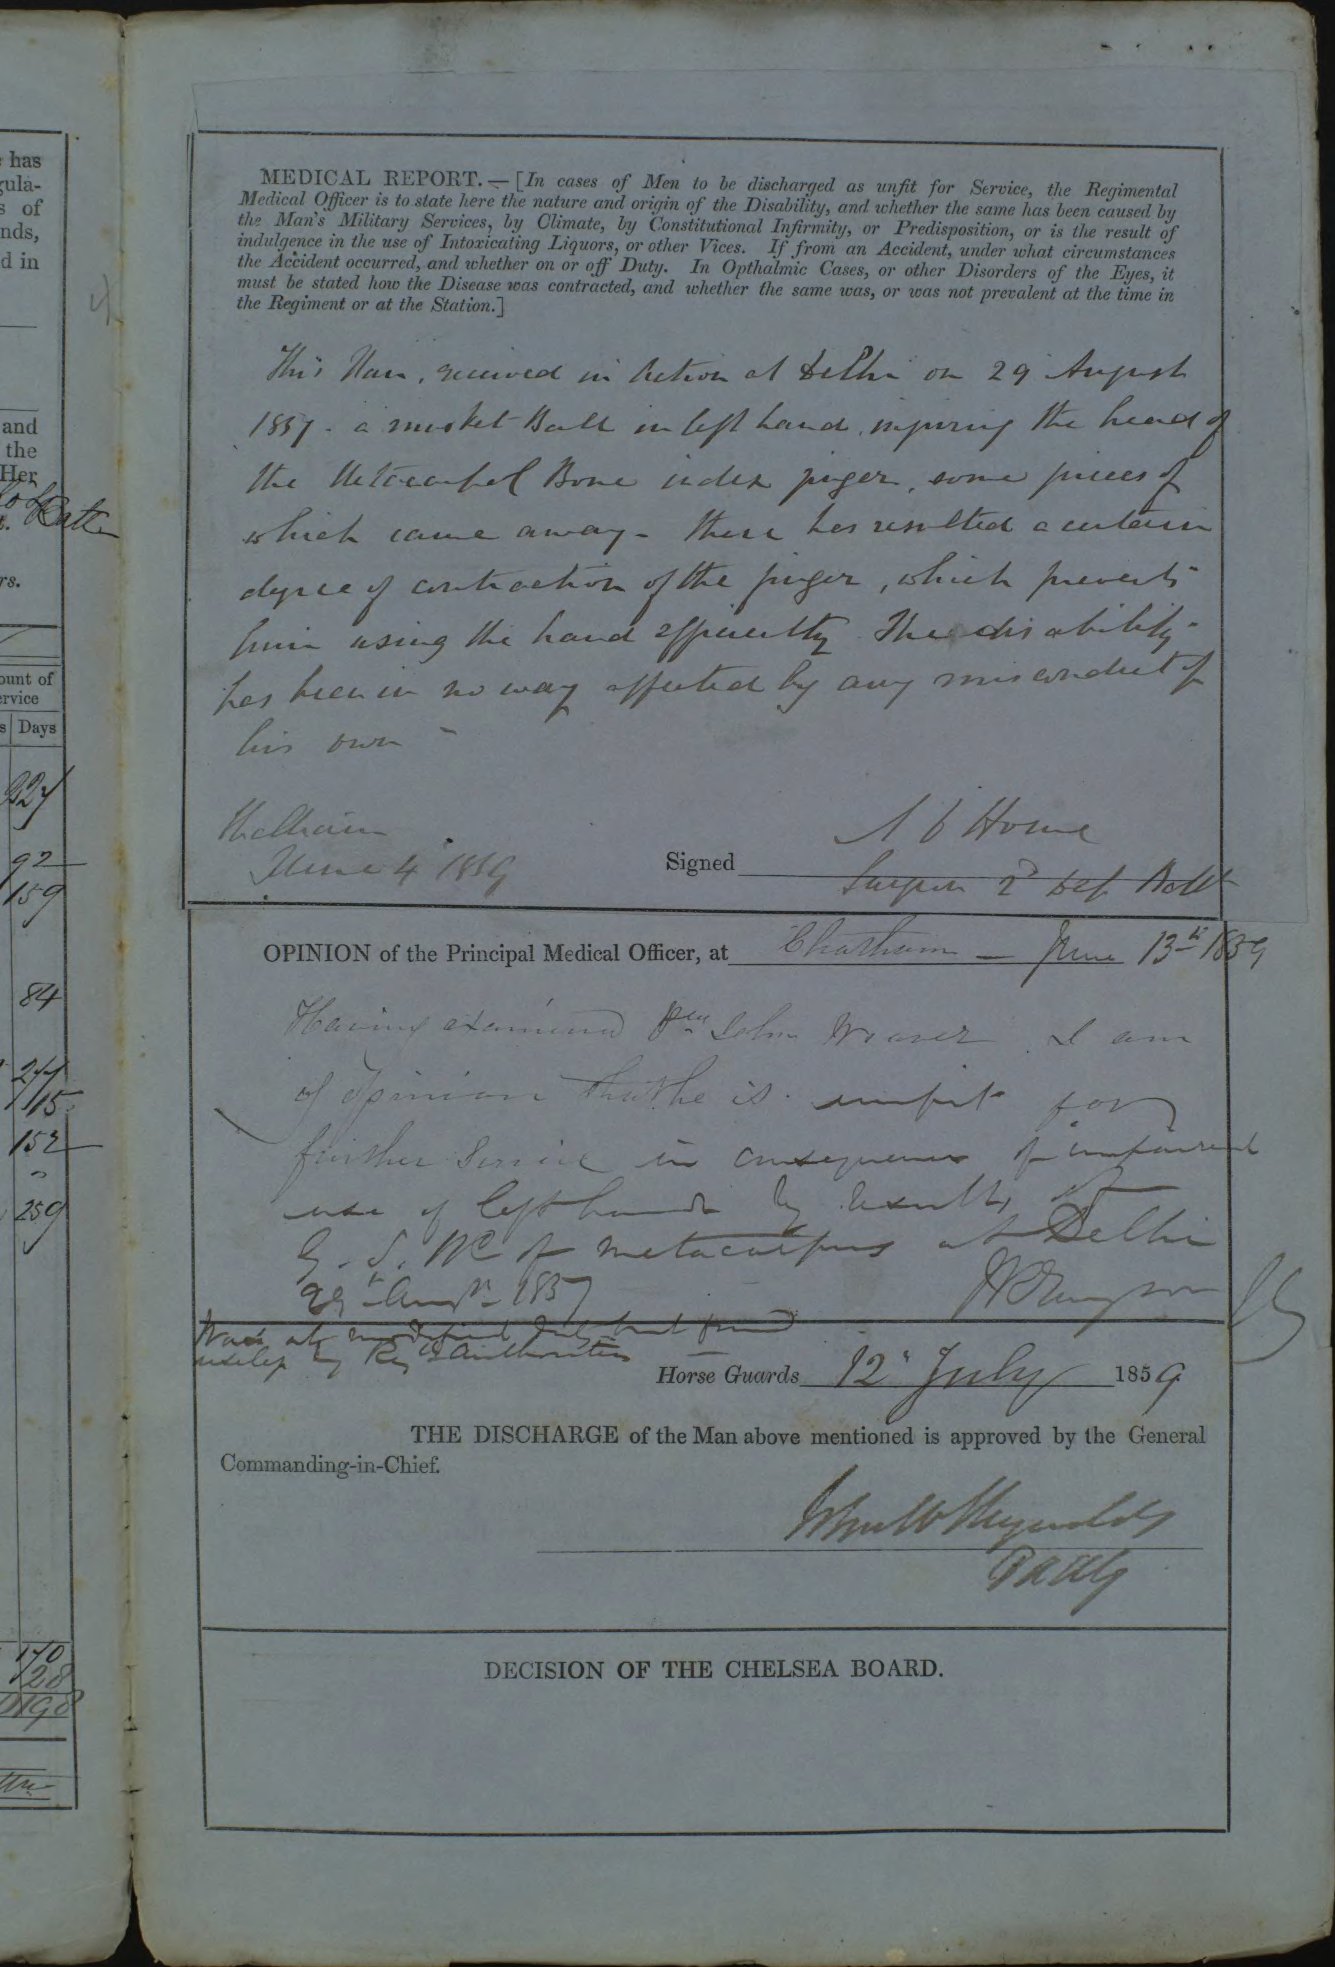 has
gula-
s of
nds,
d in
and
the
Her
rs.
ount of
ervice
s Days
327
92
159
84
277
115
152
259
170
28
198
MEDICAL REPORT.—[In cases of Men to be discharged as unfit for Service, the Regimental
Medical Officer is to state here the nature and origin of the Disability, and whether the same has been caused by
the Man's Military Services, by Climate, by Constitutional Infirmity, or Predisposition, or is the result of
indulgence in the use of Intoxicating Liquors, or other Vices. If from an Accident, under what circumstances
the Accident occurred, and whether on or off Duty. In Opthalmic Cases, or other Disorders of the Eyes, it
must be stated how the Disease was contracted, and whether the same was, or was not prevalent at the time in
the Regiment or at the Station.]
This Man, received in Action at Delhi on 29 August
1857 - a musket Ball in left hand, injuring the head of
the Metacarpal Bone index finger, some pieces of
which came away - there has resulted a certain
degree of contraction of the finger, which prevents
him using the hand efficiently. The disability
has been in no way affected by any misconduct of
his own -
Chatham
June 4 1859
Signed
Home
Surgeon 2d Dep Batt
OPINION of the Principal Medical Officer, at Chatham — June 13th 1859
Having examined John Weaver I am
of Opinion that he is unfit for
further Service in consequence of impaired
use of left hand by results of
G. S. W. of metacarpus at Delhi
29th Augt 1857
Was at modified duty but found
useless by Regl authorities
Horse Guards 12 July 1859
THE DISCHARGE of the Man above mentioned is approved by the General
Commanding-in-Chief.
Reynolds
DAAG
DECISION OF THE CHELSEA BOARD.